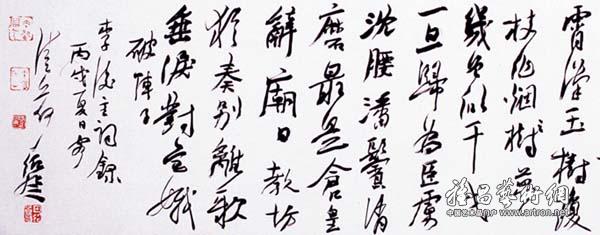 霄漢玉樹瓊
枝作烟樹蘿
幾曾似干戈
一旦歸為臣虜
沈腰潘鬢消
磨最是倉皇
辭廟日教坊
猶奏別離歌
垂淚對宮娥
破陣子
李後主詞錄
丙戌夏日書
雅昌藝術網
www.artron.net